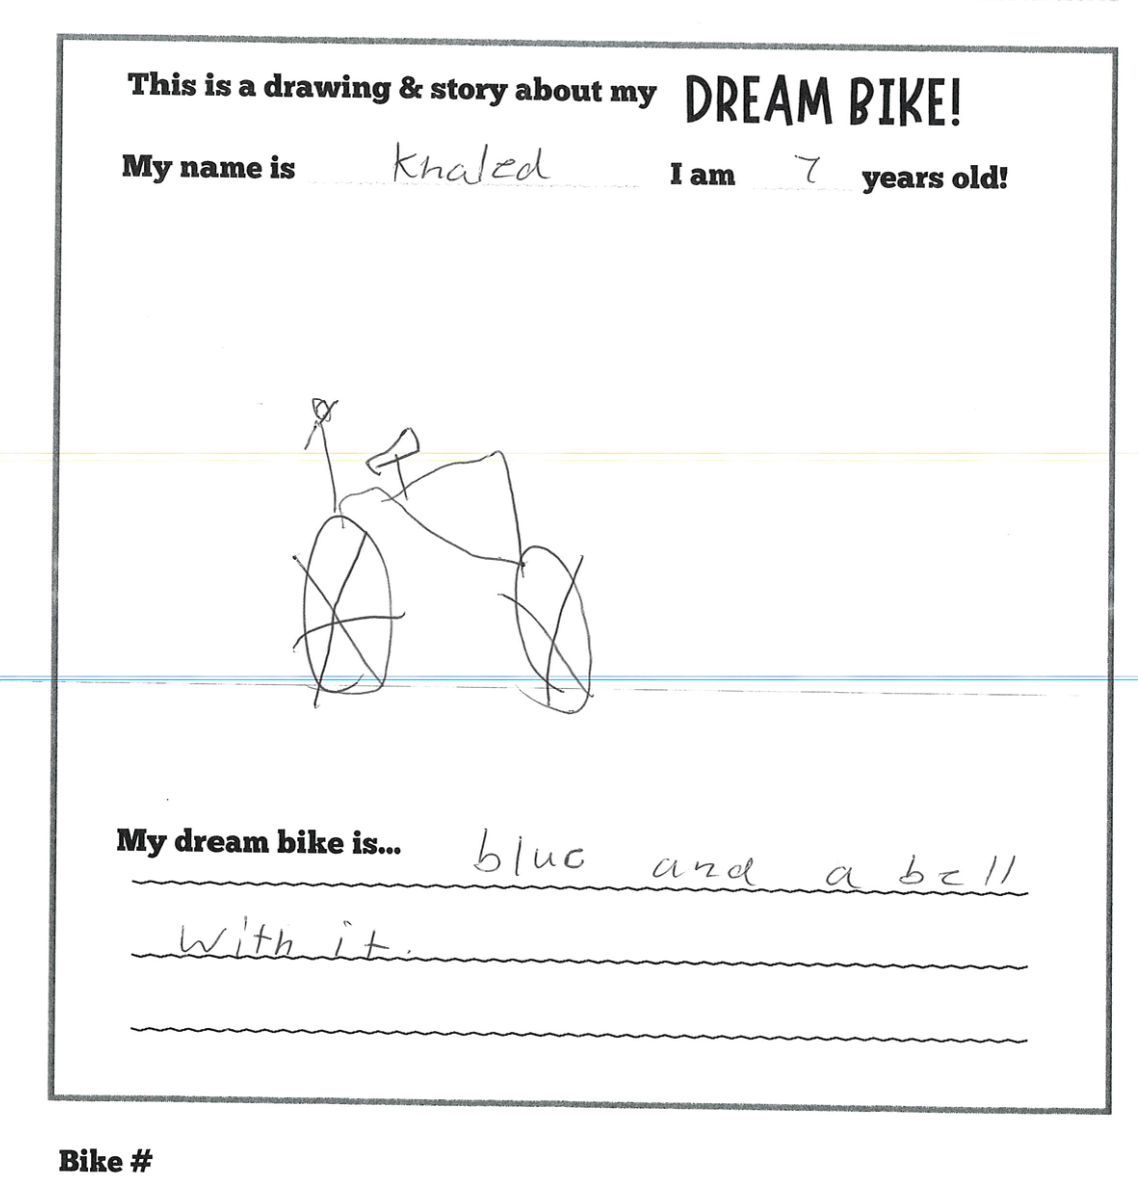 This is a drawing & story about my DREAM BIKE!
My name is Khaled I am 7 years old!
My dream bike is... blue and a bell
with it.
Bike #